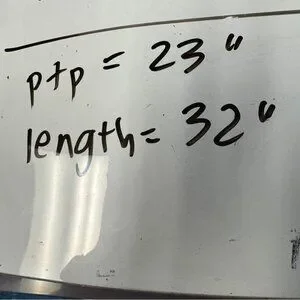 ptp = 23"
length= 32"